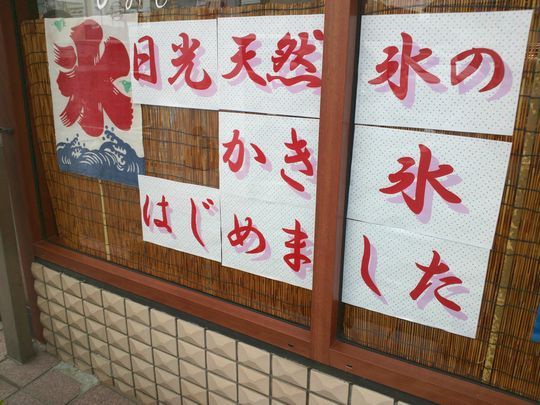 氷
日光天然氷の
かき氷
はじめました